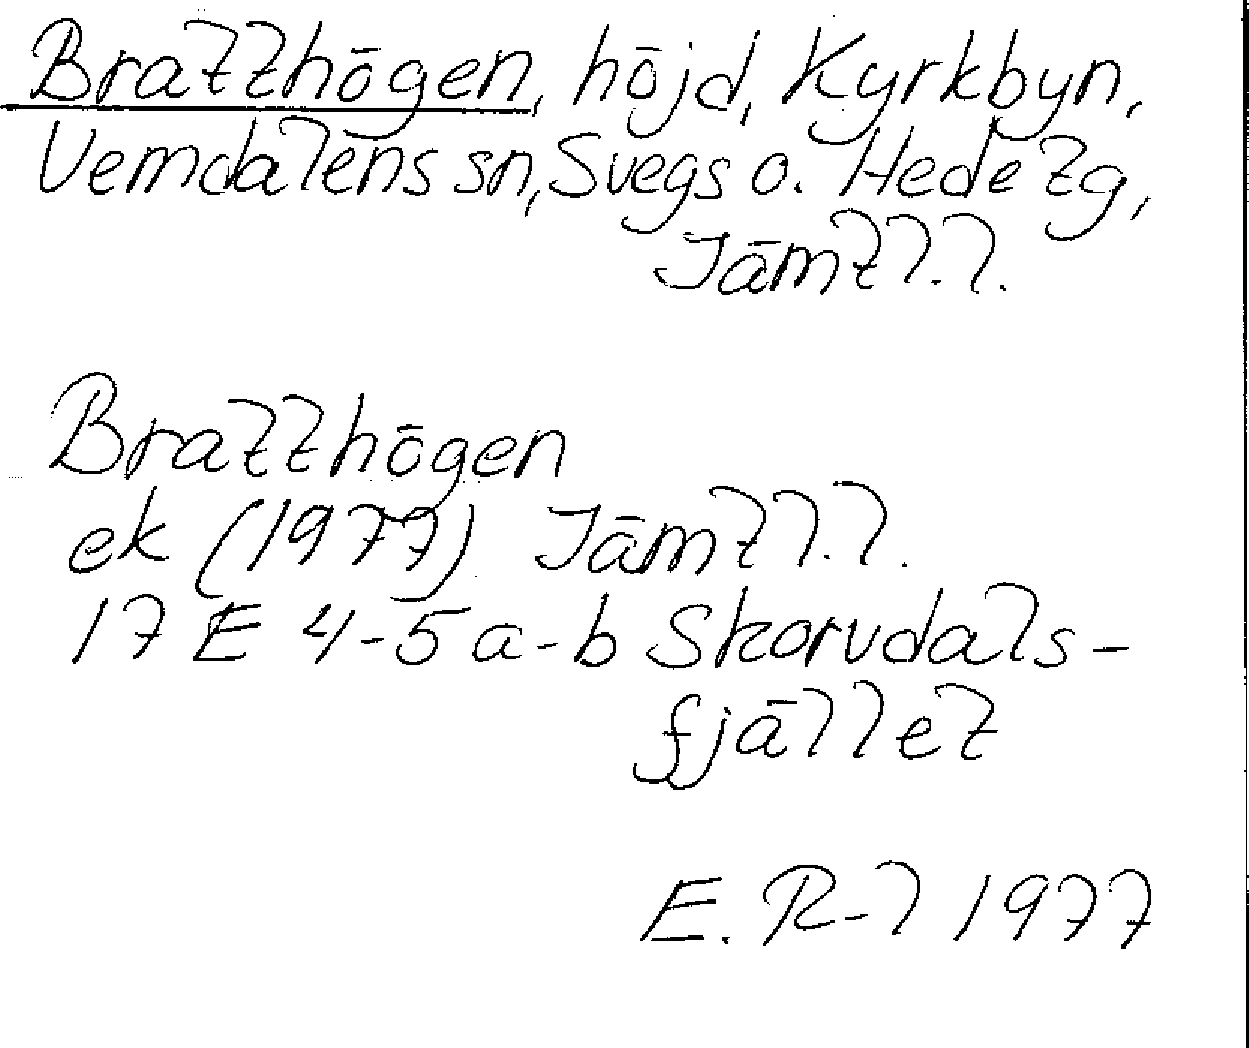 Bratthögen, höjd, Kyrkbyn,
Vemdalens sn, Svegs o. Hede tg,
Jämtl. l.
Bratthögen
ek (1977) Jämtl. l.
17 E 4-5 a-b Skorvdals-
fjället
E. R-l 1977